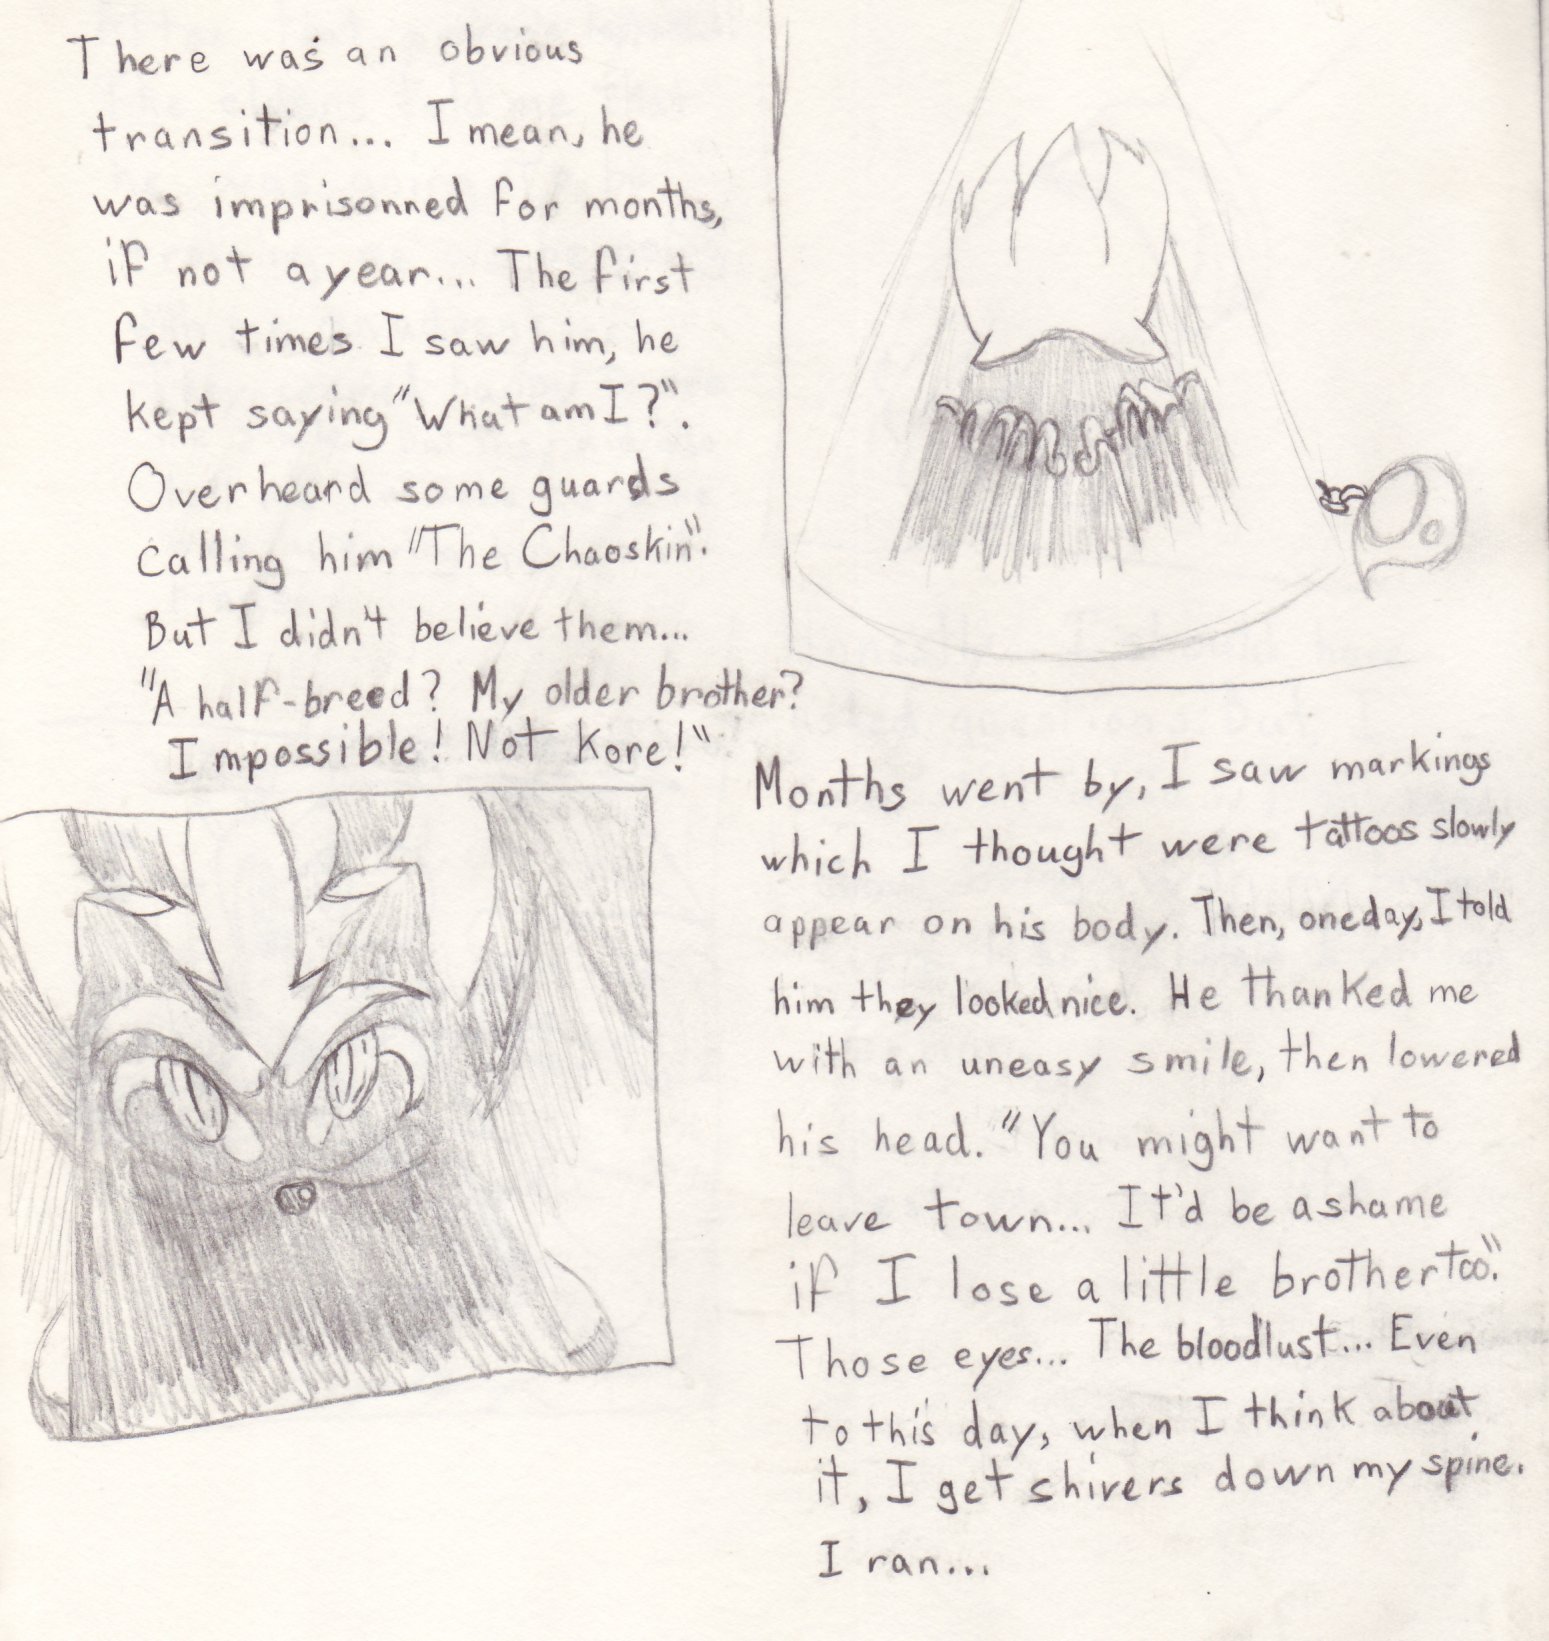 There was an obvious
transition... I mean, he
was imprisonned for months,
if not a year... The first
few times I saw him, he
kept saying "What am I?".
Overheard some guards
calling him "The Chaoskin".
But I didn't believe them...
"A half-breed? My older brother?
Impossible! Not Kore!"
Months went by, I saw markings
which I thought were tattoos slowly
appear on his body. Then, one day, I told
him they looked nice. He thanked me
with an uneasy smile, then lowered
his head. "You might want to
leave town... It'd be a shame
if I lose a little brother too."
Those eyes... The bloodlust... Even
to this day, when I think about
it, I get shivers down my spine.
I ran...